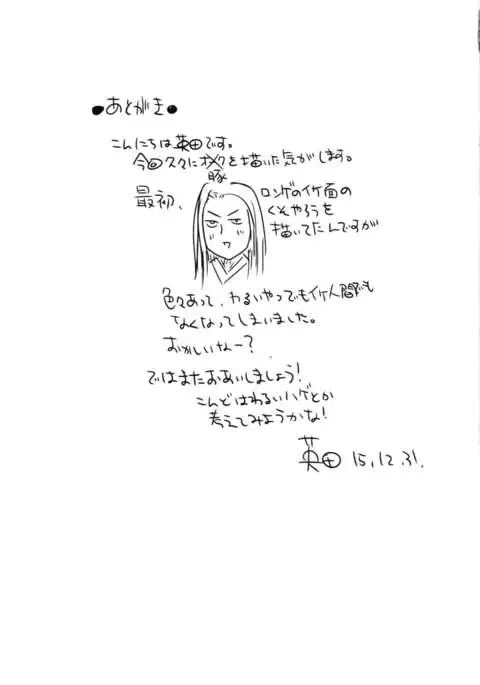 ●あとがき●
こんにちは英田です。
今回久々にオメクを描いた気がします。
豚
最初、
ロンゲのイケ面の
くそやろうを
描いてたんですが
色々あって、わるいやつでもイケ人間でも
なくなってしまいました。
おかしいなー?
ではまたおあいしましょう!
こんどはわるいハゲとか
考えてみようかな!
英田 15.12.31.